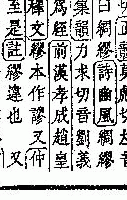 曰綢繆詩豳風綢繆
集韻力求切音劉義
爲經前漢孝成趙皇
釋文繆本作謬又仲
至是註繆違也又